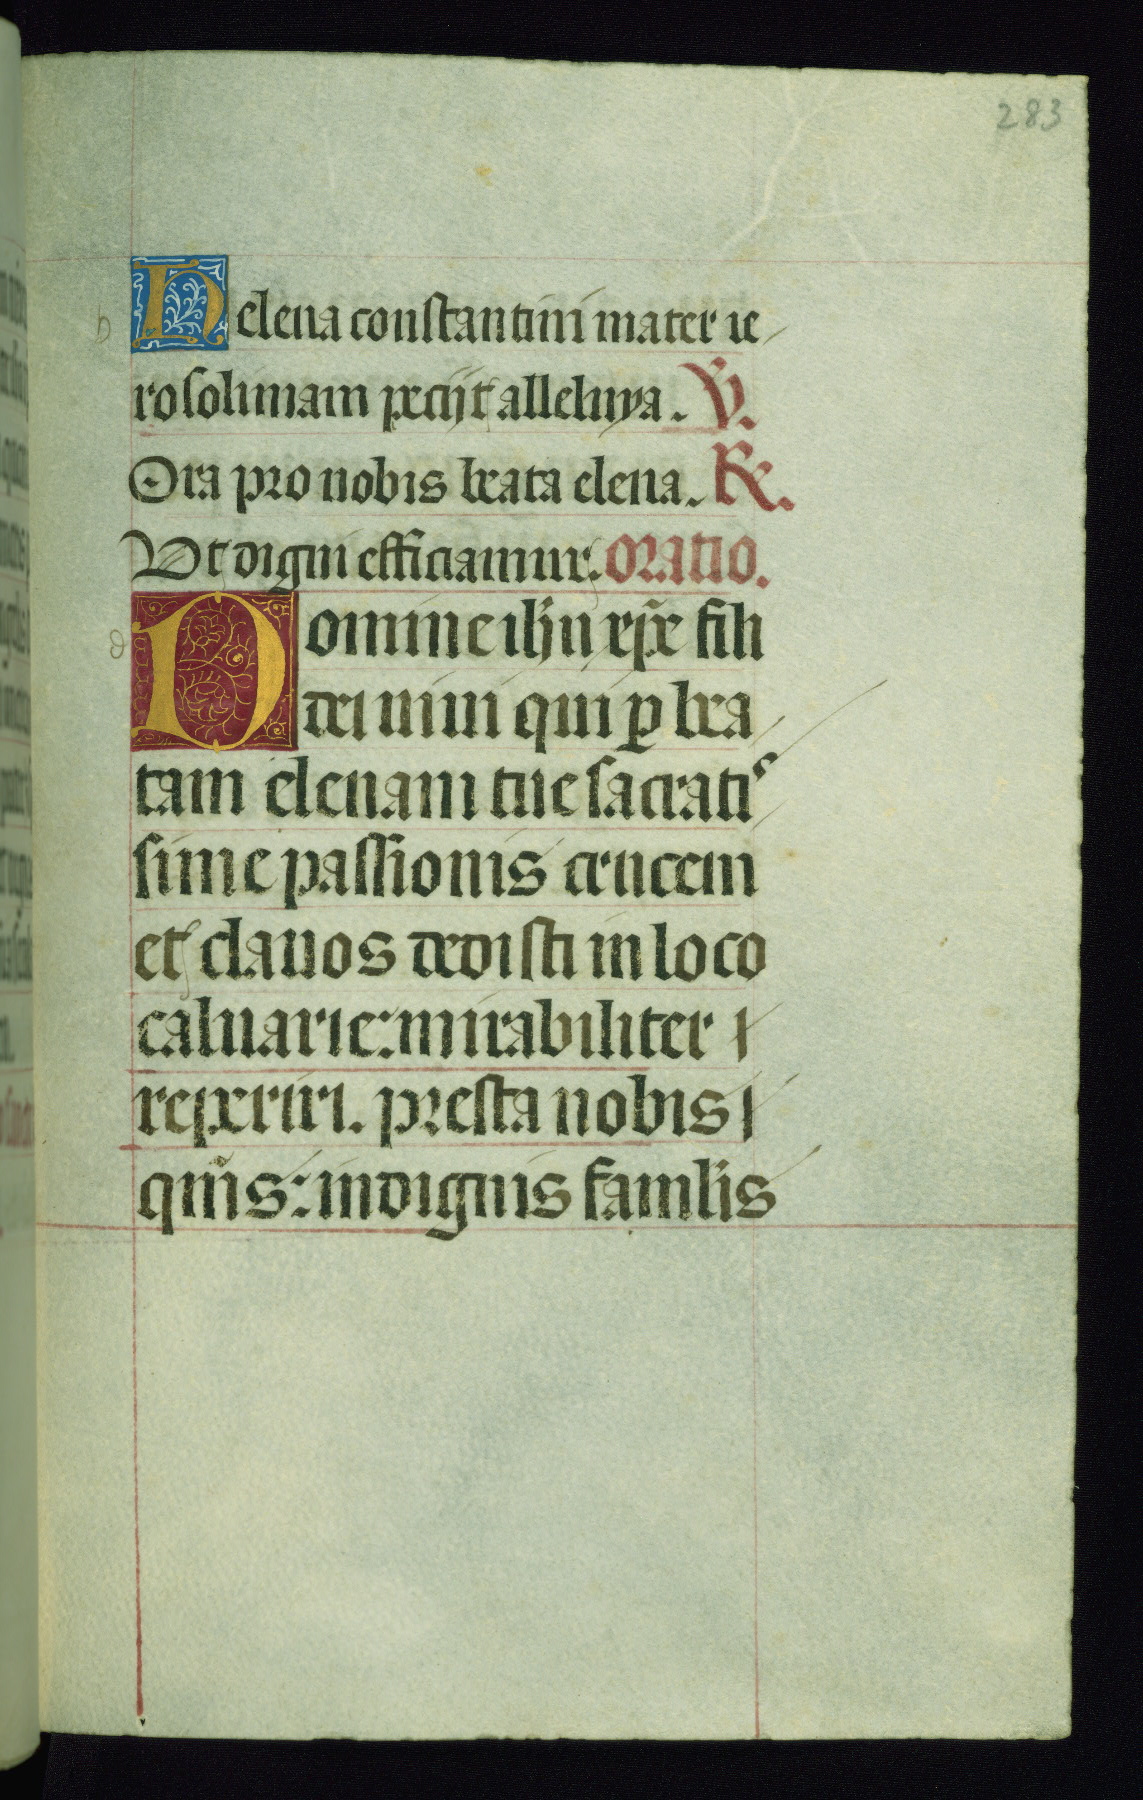 283
h
Helena constantini mater ie
rosolimam peciit alleluya. ℣.
Ora pro nobis beata elena. ℟.
Vt digni efficiamur. Oratio.
d
Domine ihu xpe fili
dei uiui qui ꝑ bea
tam elenam tue sacratis
sime passionis crucem
et clauos dedisti in loco
caluarie: mirabiliter
reperiri. presta nobis
qͥs: indignis famlis